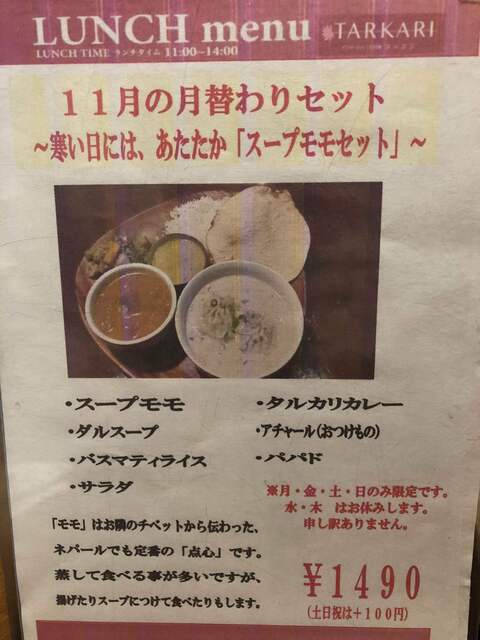 LUNCH menu
TARKARI
LUNCH TIME ランチタイム 11:00~14:00
11月の月替わりセット
~寒い日には、あたたか「スープモモセット」~
・スープモモ
・ダルスープ
・バスマティライス
・サラダ
・タルカリカレー
・アチャール(おつけもの)
・パパド
※月・金・土・日のみ限定です。
水・木 はお休みします。
申し訳ありません。
「モモ」はお隣のチベットから伝わった、
ネパールでも定番の「点心」です。
蒸して食べる事が多いですが、
揚げたりスープにつけて食べたりもします。
¥1490
(土日祝は+100円)